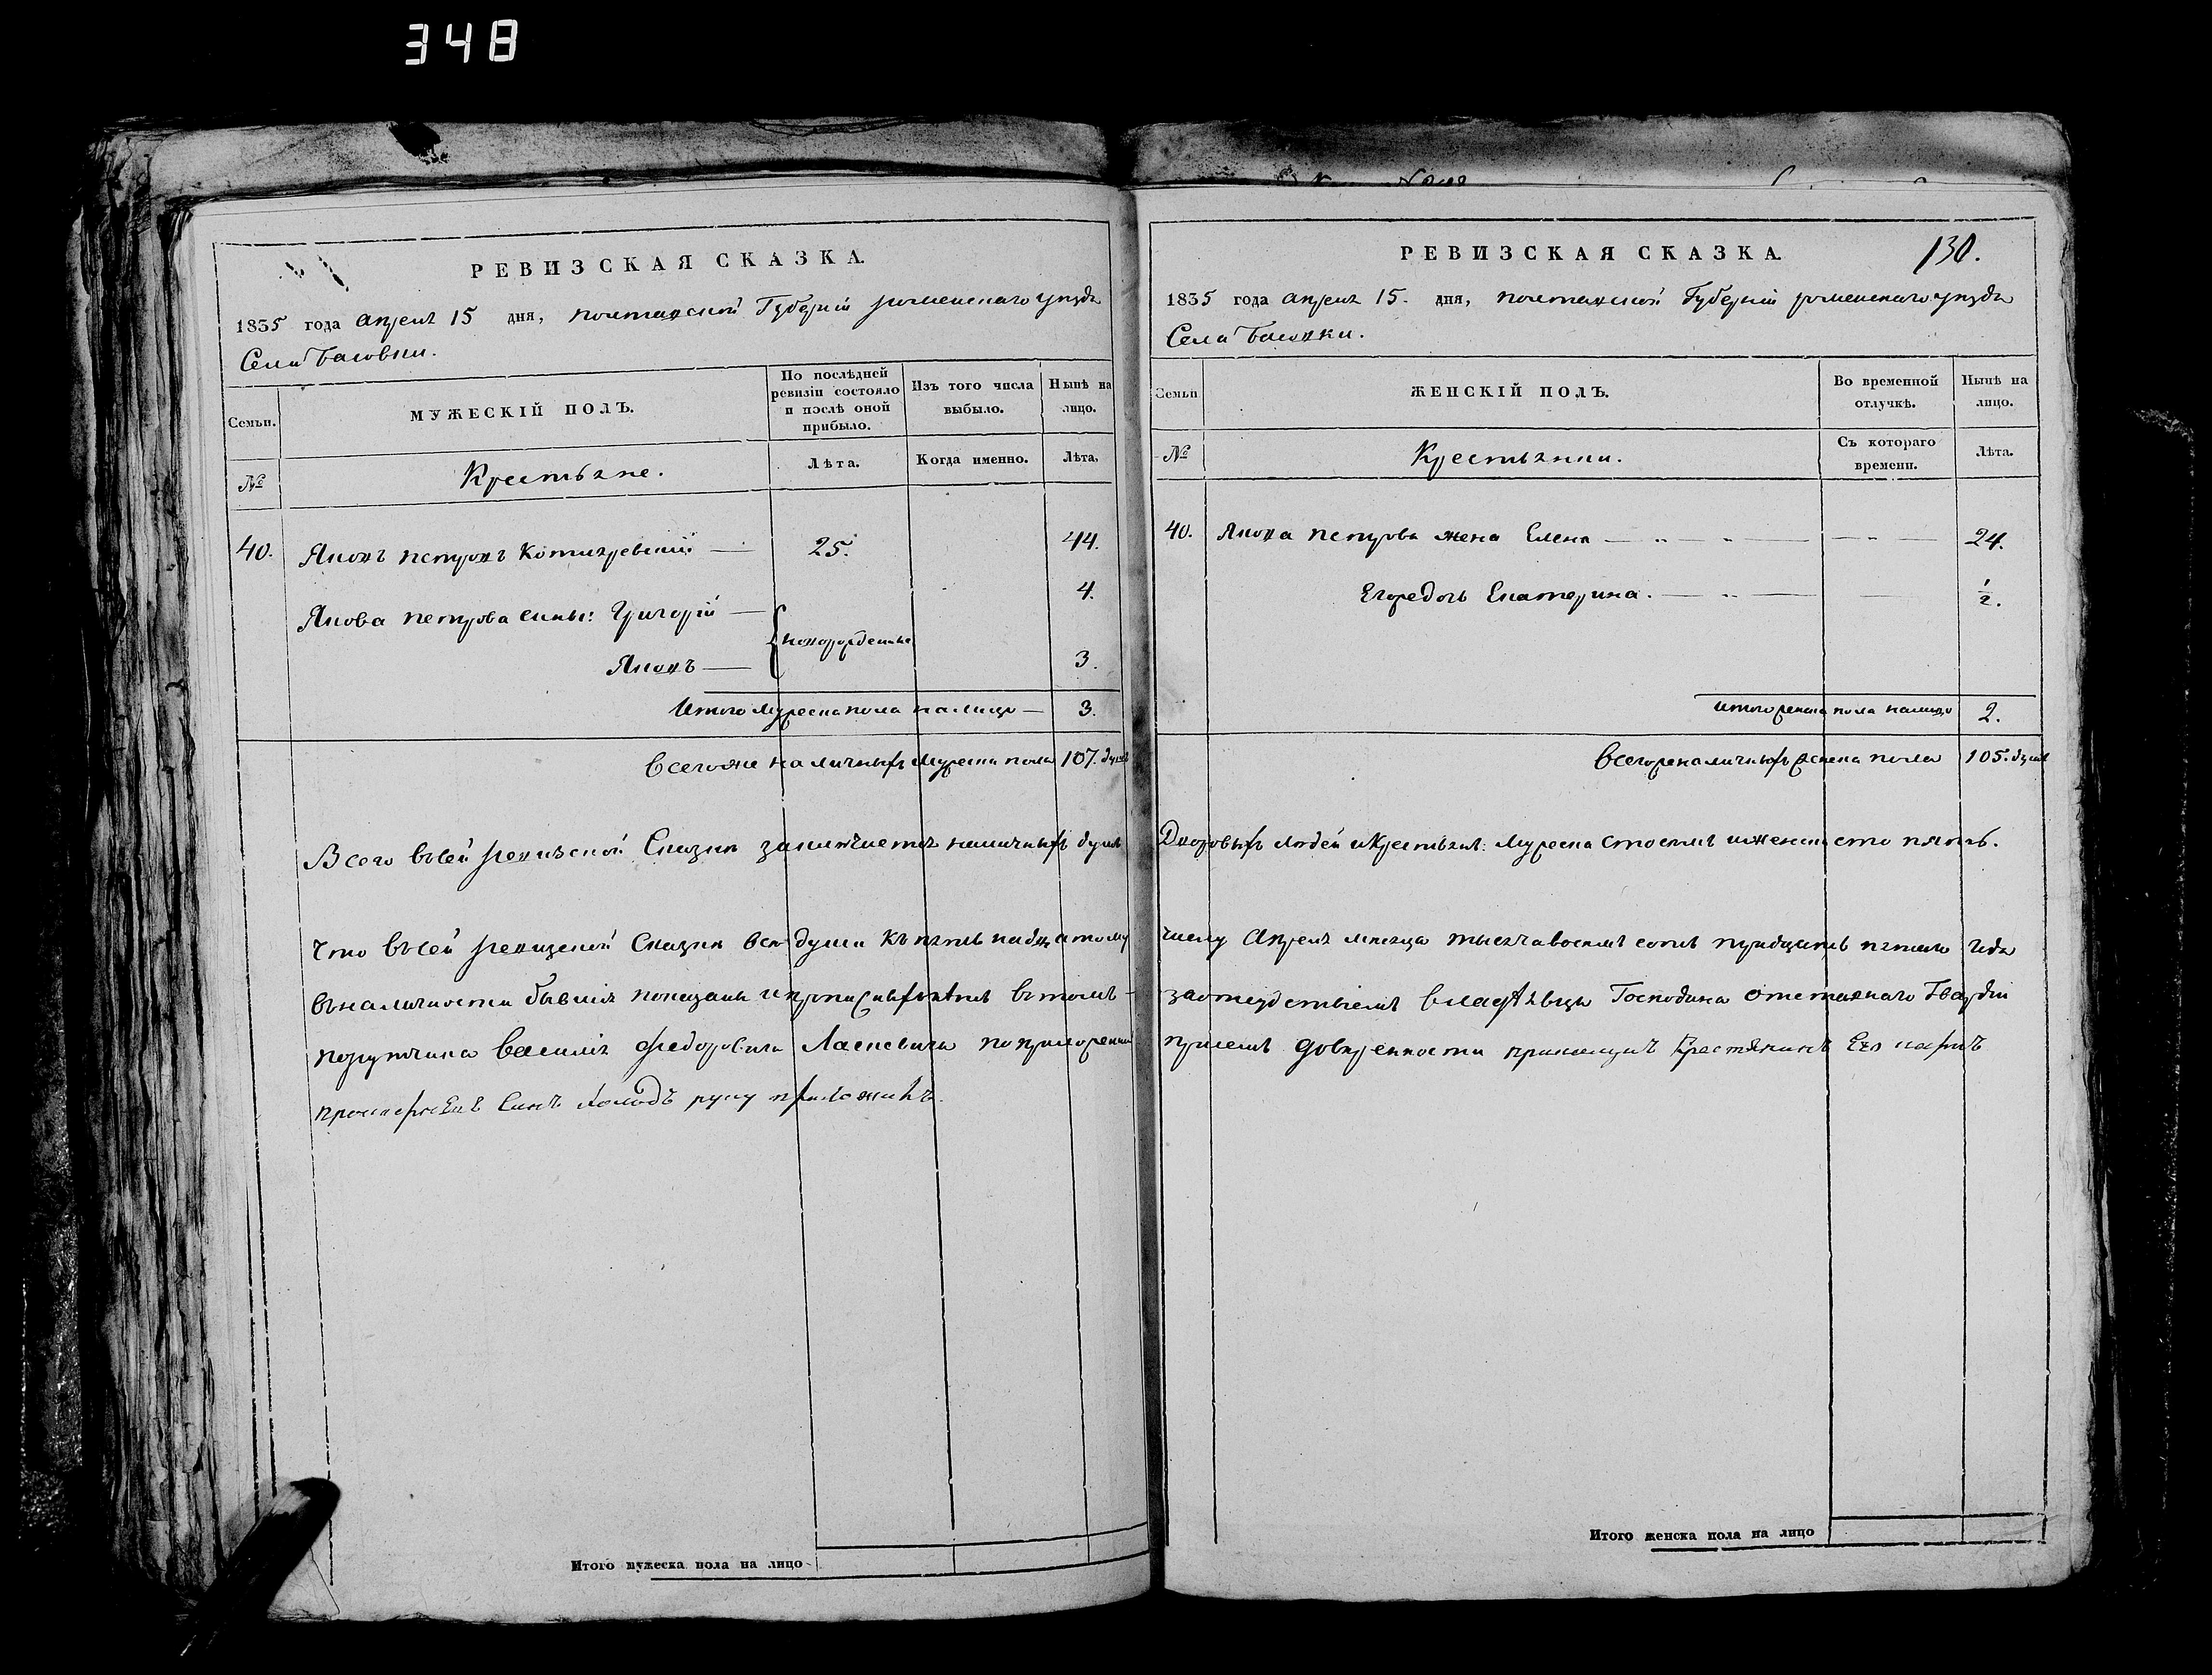 348
РЕВИЗСКАЯ СКАЗКА.
1835 года Апреля 15 дня, полтавской Губерніи роменскаго уезда
Села Басовки.
Семьи.
МУЖЕСКІЙ ПОЛЪ.
По послѣдней ревизіи состояло и послѣ оной прибыло.
Изъ того числа выбыло.
Нынѣ на лицо.
№
Крестьяне.
Лѣта.
Когда именно.
Лѣта.
40. Яковъ петровъ Котляревскій — 25. 44.
Якова петрова сины: Григорій — 4.
новорожденные
Яковъ — 3.
Итого мужеска пола налицо — 3.
Всегоже наличныхъ мужеска пола 107. душъ
Всего въсей ревизской Сказки заключается наличныхъ душъ
Что въсей ревизской Сказки все души къ пятьнадцатому
въналичности бывшія показаны и прописныхънѣтъ втомъ
порутчика василія Федоровича Ласкевича
синъ руку приложилъ.
РЕВИЗСКАЯ СКАЗКА.
130.
1835 года апреля 15. дня, полтавской Губерніи роменскаго уезда
Села Басовки.
Семьи
ЖЕНСКІЙ ПОЛЪ.
Во временной отлучкѣ.
Нынѣ на лицо.
№
Крестьянки.
Съ котораго времени.
Лѣта.
40. Якова петрова жена Елена — 24.
Егоредочь Екатерина. — 1/2.
Итого женска пола налицо 2.
Всегоже наличныхъ женска пола 105. душъ
Дворовыхъ людей и Крестьянъ: мужеска стосемъ и женска сто пять.
числу Апреля месяца тысяча восемъ сотъ тридцать пятаго года
заотсудствіемъ владѣльца Господина отставнаго Гвардіи
доверенности Крестянинъ Его
Итого мужеска пола на лицо
Итого женска пола на лицо